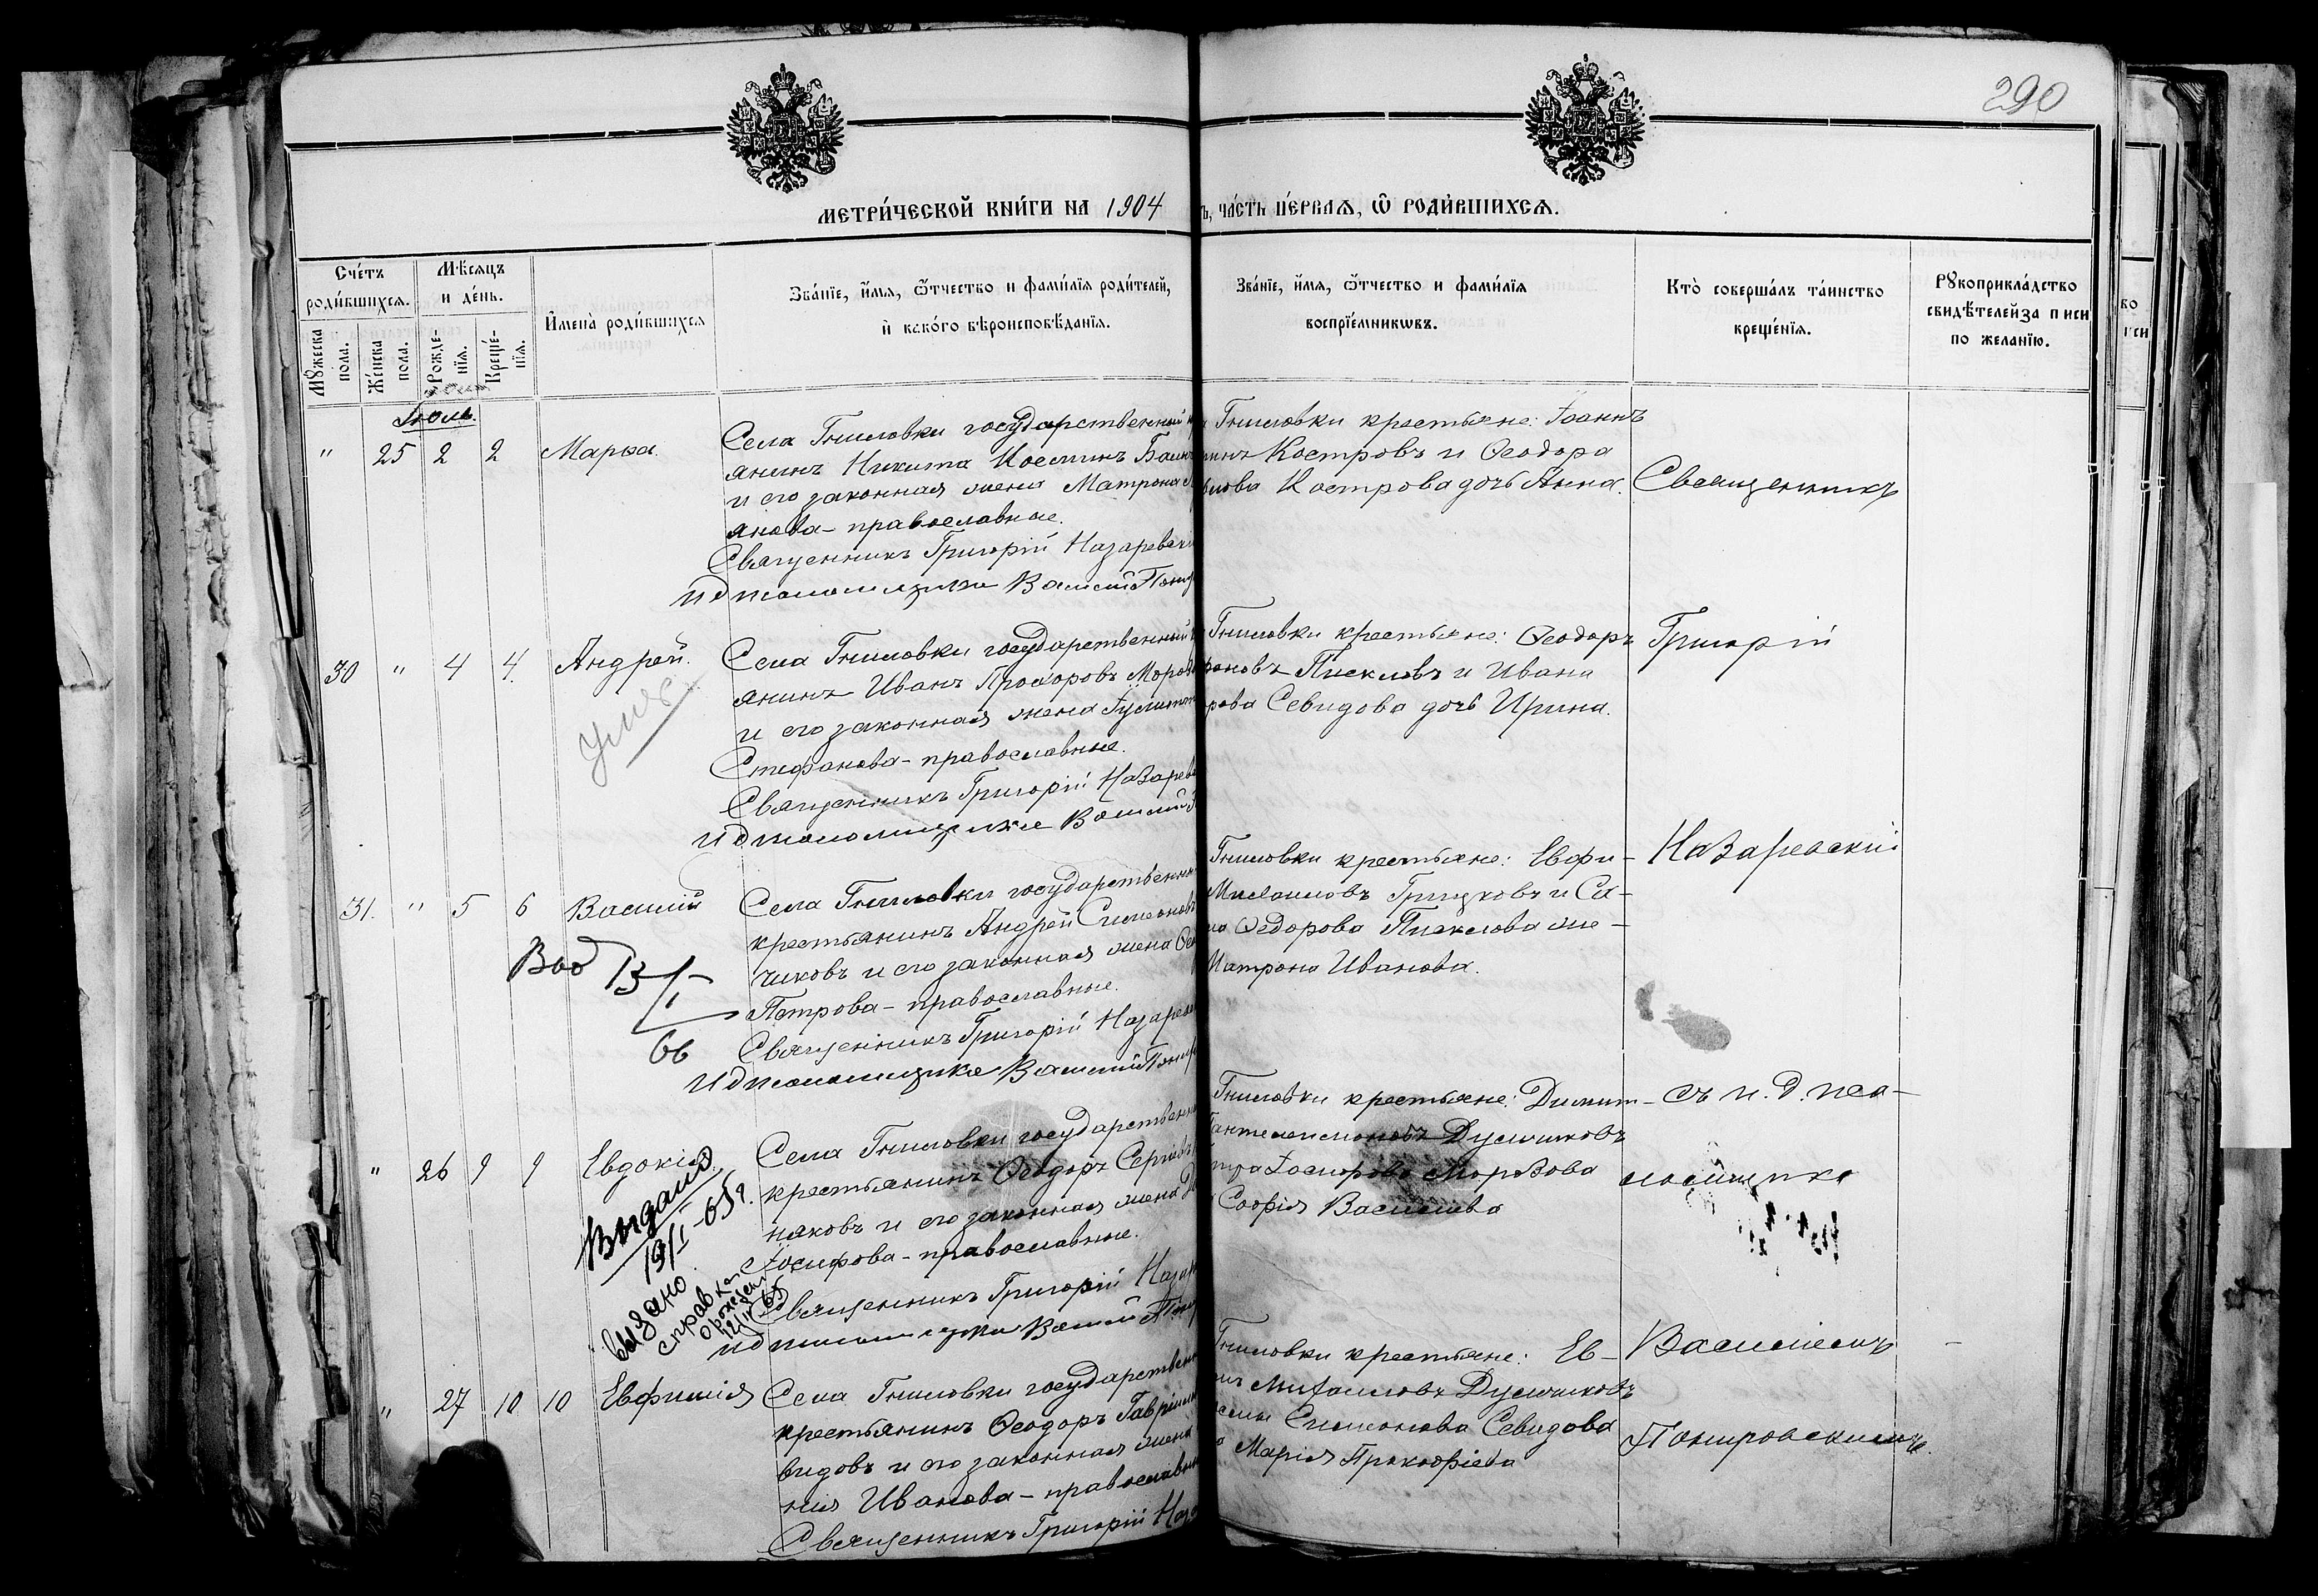 290
МЕТРИ́ЧЕСКОЙ КНИ́ГИ НА 1904
Ъ, ЧА́СТЬ ПЕ́РВАѦ, Ѿ РОДИ́ВШИХСѦ.
Сче́тъ
роди́вшихся.
Мѣ́сяцъ
и де́нь.
Мꙋжеска
пола.
Же́нска
пола.
Рожде-
нія.
Креще́-
нія.
И҆мена̀ роди́вшихся
Зва́нїе, и҆́мѧ, ѻ҆́тчество и фами́лїѧ роди́телей,
и҆ како́гѡ вѣроисповѣ́данїѧ.
Зва́нїе, и҆́мѧ, ѻ҆́тчество и фами́лїѧ
воспрїе́мникѡвъ.
Кто̀ соверша́лъ та́инство
креще́нїѧ.
Рꙋкоприкла́дство
свидѣ́телей записи
по жела́нїю.
Іюль.
" 25 2 2 Марѳа.
Села Гниловки государственный
янинъ Никита Косминъ
и его законная жена Матрона
анова - православные.
Священникъ Григорій Назаревскій
И д псаломщика Василій
Гниловки крестьяне: Іоаннъ
Костровъ и Ѳеодора
Кострова дочь Анна.
Священникъ
30 " 4 4. Андрей.
Села Гниловки государственный
янинъ Иванъ Прохоровъ Мороз
и его законная жена
Стефанова - православные.
Священникъ Григорій Назарев
И д псаломщика Василій
Гниловки крестьяне: Ѳеодоръ
Писклов и Ивана
Севидова дочь Ирина.
Григорій
31. " 5 6 Василій
Вод 13/I
66
Села Гниловки государственны
крестьянинъ Андрей Симеоновъ
чиковъ и его законная жена
Петрова - православные.
Священникъ Григорій Назарев
И д псаломщика Василій
Гниловки крестьяне: Евфи-
Михаиловъ Грицковъ и Си-
Ѳедорова Писклова же-
Матрона Иванова.
Назаревскій
" 26 9 9 Евдокія.
Выдано
19/I-65г.
выдано
справка
о рожден
Села Гниловки государственны
крестьянинъ Ѳеодоръ Сергіевъ
няковъ и его законная жена
Іосифова - православные.
Священникъ Григорій Назар
И д псаломщика Василій
Гниловки крестьяне: Димит-
Пантелеимоновъ Дуличковъ
Морозова
Софія Васильева
съ и. д. пса-
ломщика
" 27 10 10 Евфимія
Села Гниловки государствен
крестьянинъ Ѳеодоръ Гавріил
видовъ и его законная жена
нія Иванова - православны
Священникъ Григорій Наз
Гниловки крестьяне: Ев-
Михаиловъ Дуличковъ
Симеонова Севидова
Марія Прокофіева
Василіемъ
Понировскимъ.